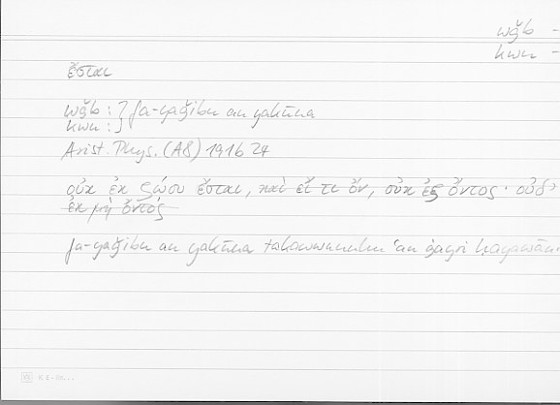 wǧb –
kwn –
ἔσται
wǧb : } fa-yaǧibu an yakūna
kwn : }
Arist. Phys. (A8) 191b 24
οὐκ ἐκ ζῴου ἔσται, καὶ εἴ τι ὄν, οὐκ ἐξ ὄντος· οὐδ'
ἐκ μὴ ὄντος
fa-yaǧibu an yakūna takawwunuhu ʿan ġayri ḥayawān